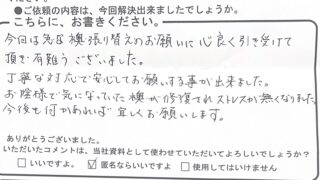 ●ご依頼の内容は、今回解決出来ましたでしょうか。
こちらに、お書きください。
今回は急な襖張り替えのお願いに心良く引き受けて
頂き有難うございました。
丁寧な対応で安心してお願いする事が出来ました。
お陰様で気になっていた襖が修復されストレスが無くなりました。
今後も何かあれば宜しくお願いします。
ありがとうございました。
いただいたコメントは、当社資料として使わせていただいてよろしいでしょうか？
□いいですよ。 ☑匿名ならいいですよ □使用してはいけません